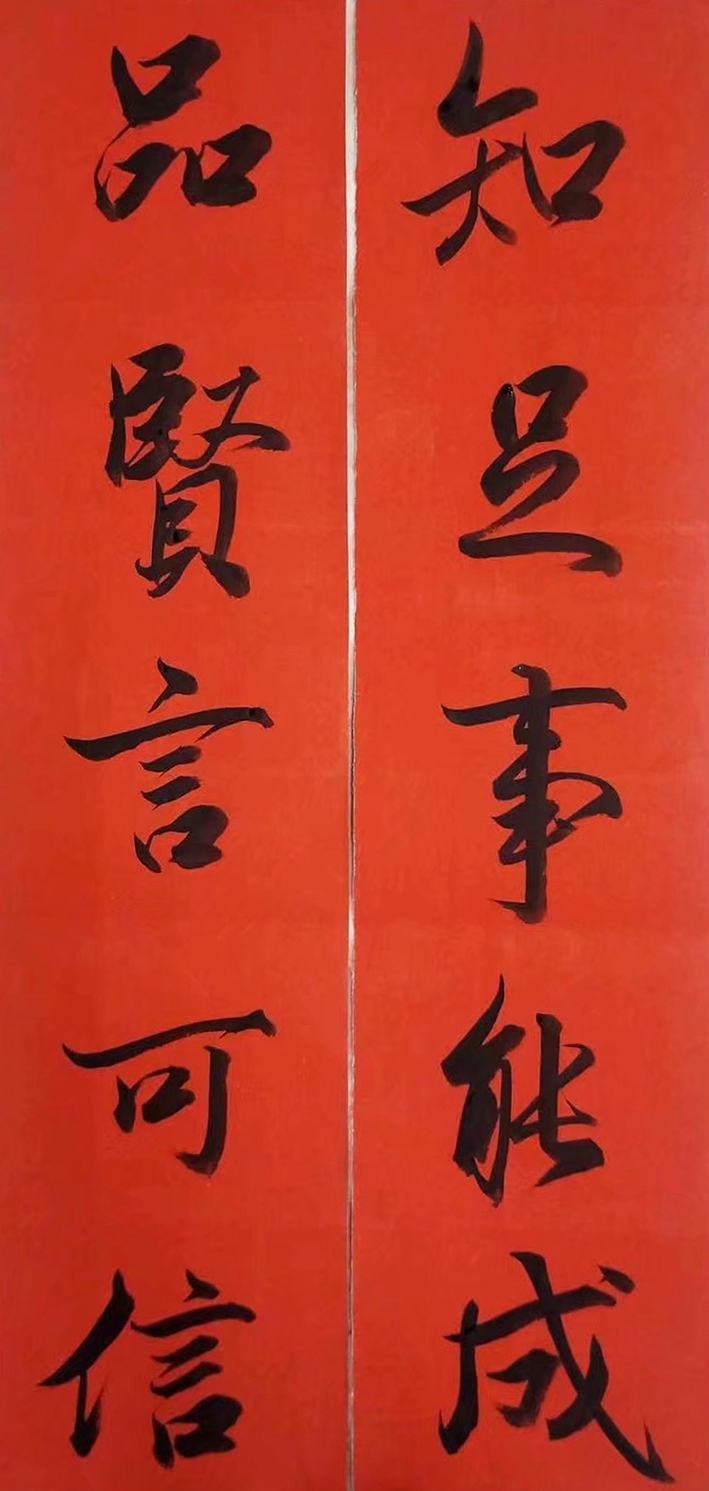 知足事能成
品賢言可信